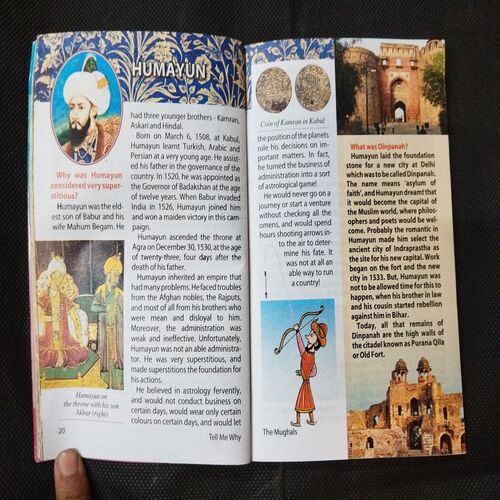 HUMAYUN
Why was Humayun
considered very super-
stitious?
Humayun was the eld-
est son of Babur and his
wife Mahum Begam. He
Humayun on
the throne with his son
Akbar (right)
had three younger brothers - Kamran,
Askari and Hindal.
Born on March 6, 1508, at Kabul,
Humayun learnt Turkish, Arabic and
Persian at a very young age. He assist-
ed his father in the governance of the
country. In 1520, he was appointed as
the Governor of Badakshan at the age
of twelve years. When Babur invaded
India in 1526, Humayun joined him
and won a maiden victory in this cam-
paign.
Humayun ascended the throne at
Agra on December 30, 1530, at the age
of twenty-three, four days after the
death of his father.
Humayun inherited an empire that
had many problems. He faced troubles
from the Afghan nobles, the Rajputs,
and most of all from his brothers who
were mean and disloyal to him.
Moreover, the administration was
weak and ineffective. Unfortunately,
Humayun was not an able administra-
tor. He was very superstitious, and
made superstitions the foundation for
his actions.
He believed in astrology fervently,
and would not conduct business on
certain days, would wear only certain
colours on certain days, and would let
20
Tell Me Why
Coin of Kamran in Kabul
the position of the planets
rule his decisions on im-
portant matters. In fact,
he turned the business of
administration into a sort
of astrological game!
He would never go on a
journey or start a venture
without checking all the
omens, and would spend
hours shooting arrows in-
to the air to deter-
mine his fate. It
was not at all an
able way to run
a country!
The Mughals
What was Dinpanah?
Humayun laid the foundation
stone for a new city at Delhi
which was to be called Dinpanah.
The name means 'asylum of
faith', and Humayun dreamt that
it would become the capital of
the Muslim world, where philos-
ophers and poets would be wel-
come. Probably the romantic in
Humayun made him select the
ancient city of Indraprastha as
the site for his new capital. Work
began on the fort and the new
city in 1533. But, Humayun was
not to be allowed time for this to
happen, when his brother in law
and his cousin started rebellion
against him in Bihar.
Today, all that remains of
Dinpanah are the high walls of
the citadel known as Purana Qila
or Old Fort.